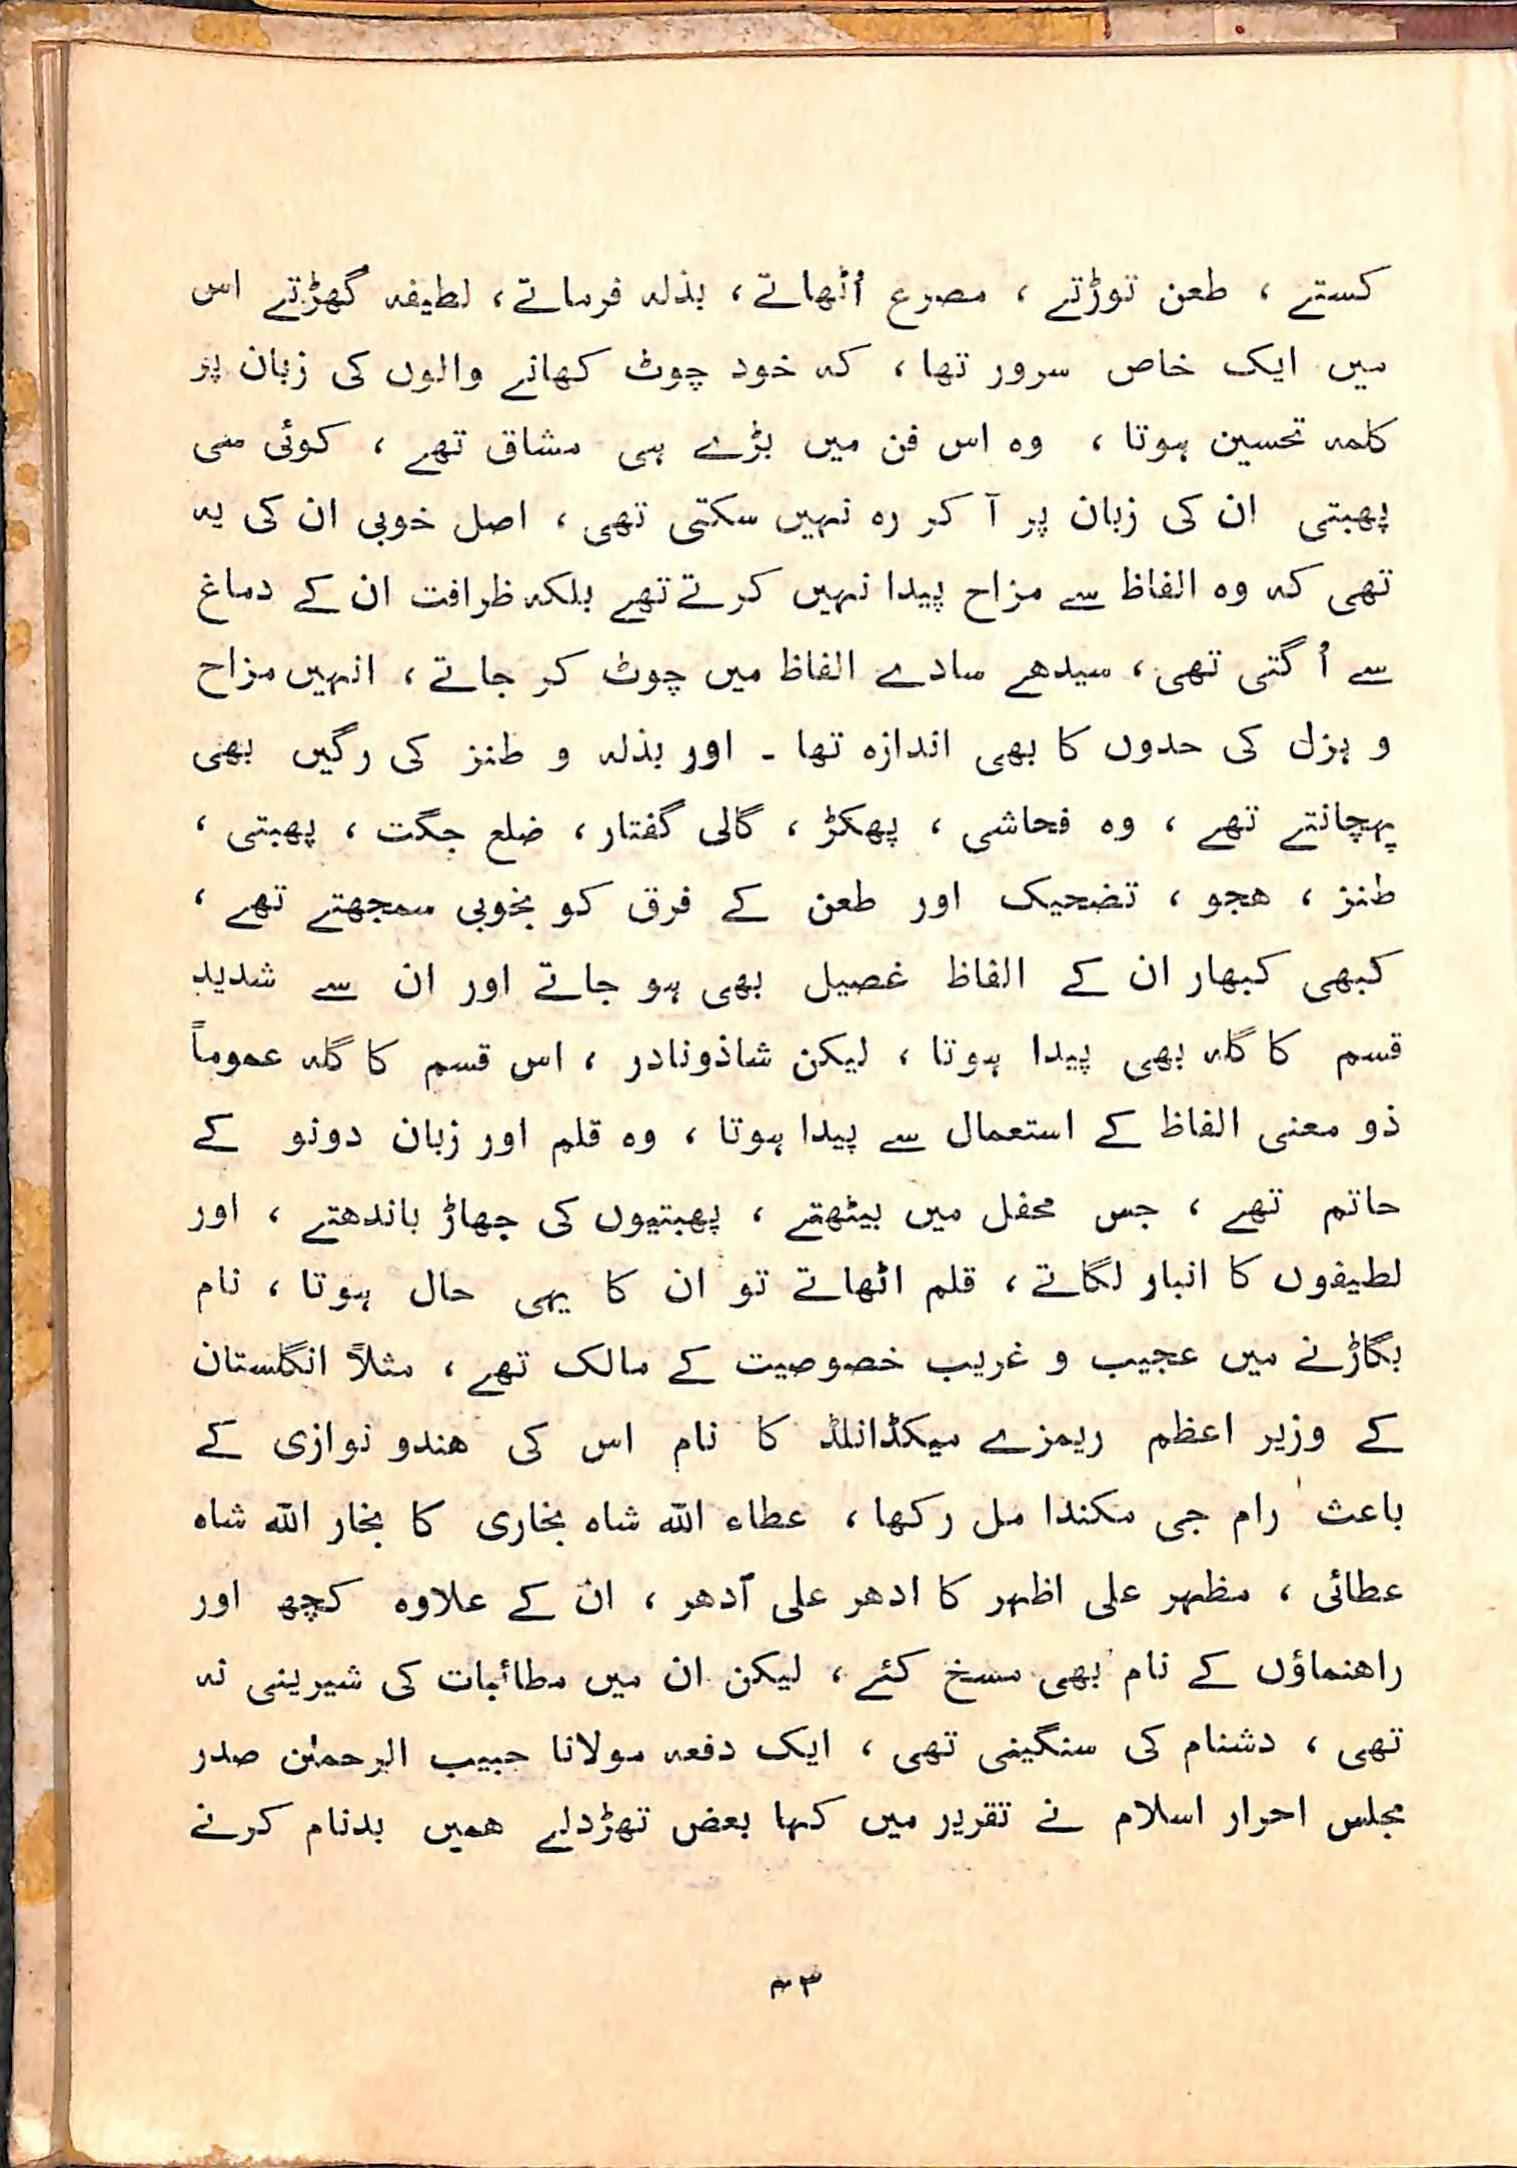 کستے ، طعن توڑتے ، مصرع اُٹھاتے ، بذلہ فرماتے ، لطیفہ گھڑتے اس
میں ایک خاص سرور تھا ، کہ خود چوٹ کھانے والوں کی زبان پر
کلمہ تحسین ہوتا ، وہ اس فن میں بڑے ہی مشاق تھے ، کوئی سی
پھبتی ان کی زبان پر آ کر رہ نہیں سکتی تھی ، اصل خوبی ان کی یہ
تھی کہ وہ الفاظ سے مزاح پیدا نہیں کرتے تھے بلکہ ظرافت ان کے دماغ
سے اُگتی تھی ، سیدھے سادے الفاظ میں چوٹ کر جاتے ، انہیں مزاح
و ہزل کی حدوں کا بھی اندازہ تھا ۔ اور بذلہ و طنز کی رگیں بھی
پہچانتے تھے ، وہ فحاشی ، پھکڑ ، گالی گفتار ، ضلع جگت ، پھبتی ،
طنز ، ھجو ، تضحیک اور طعن کے فرق کو بخوبی سمجھتے تھے ،
کبھی کبھار ان کے الفاظ غصیل بھی ہو جاتے اور ان سے شدید
قسم کا گلہ بھی پیدا ہوتا ، لیکن شاذونادر ، اس قسم کا گلہ عموماً
ذو معنی الفاظ کے استعمال سے پیدا ہوتا ، وہ قلم اور زبان دونو کے
حاتم تھے ، جس محفل میں بیٹھتے ، پھبتیوں کی جھاڑ باندھتے ، اور
لطیفوں کا انبار لگاتے ، قلم اٹھاتے تو ان کا یہی حال ہوتا ، نام
بگاڑنے میں عجیب و غریب خصوصیت کے مالک تھے ، مثلاً انگلستان
کے وزیر اعظم ریمزے میکڈانلڈ کا نام اس کی ھندو نوازی کے
باعث رام جی مکندا مل رکھا ، عطاء اللہ شاہ بخاری کا بخار اللہ شاہ
عطائی ، مظہر علی اظہر کا ادھر علی اُدھر ، ان کے علاوہ کچھ اور
راھنماؤں کے نام بھی مسخ کئے ، لیکن ان میں مطائبات کی شیرینی نہ
تھی ، دشنام کی سنگینی تھی ، ایک دفعہ مولانا حبیب الرحمٰن صدر
مجلس احرار اسلام نے تقریر میں کہا بعض تھڑدلے ھمیں بدنام کرنے